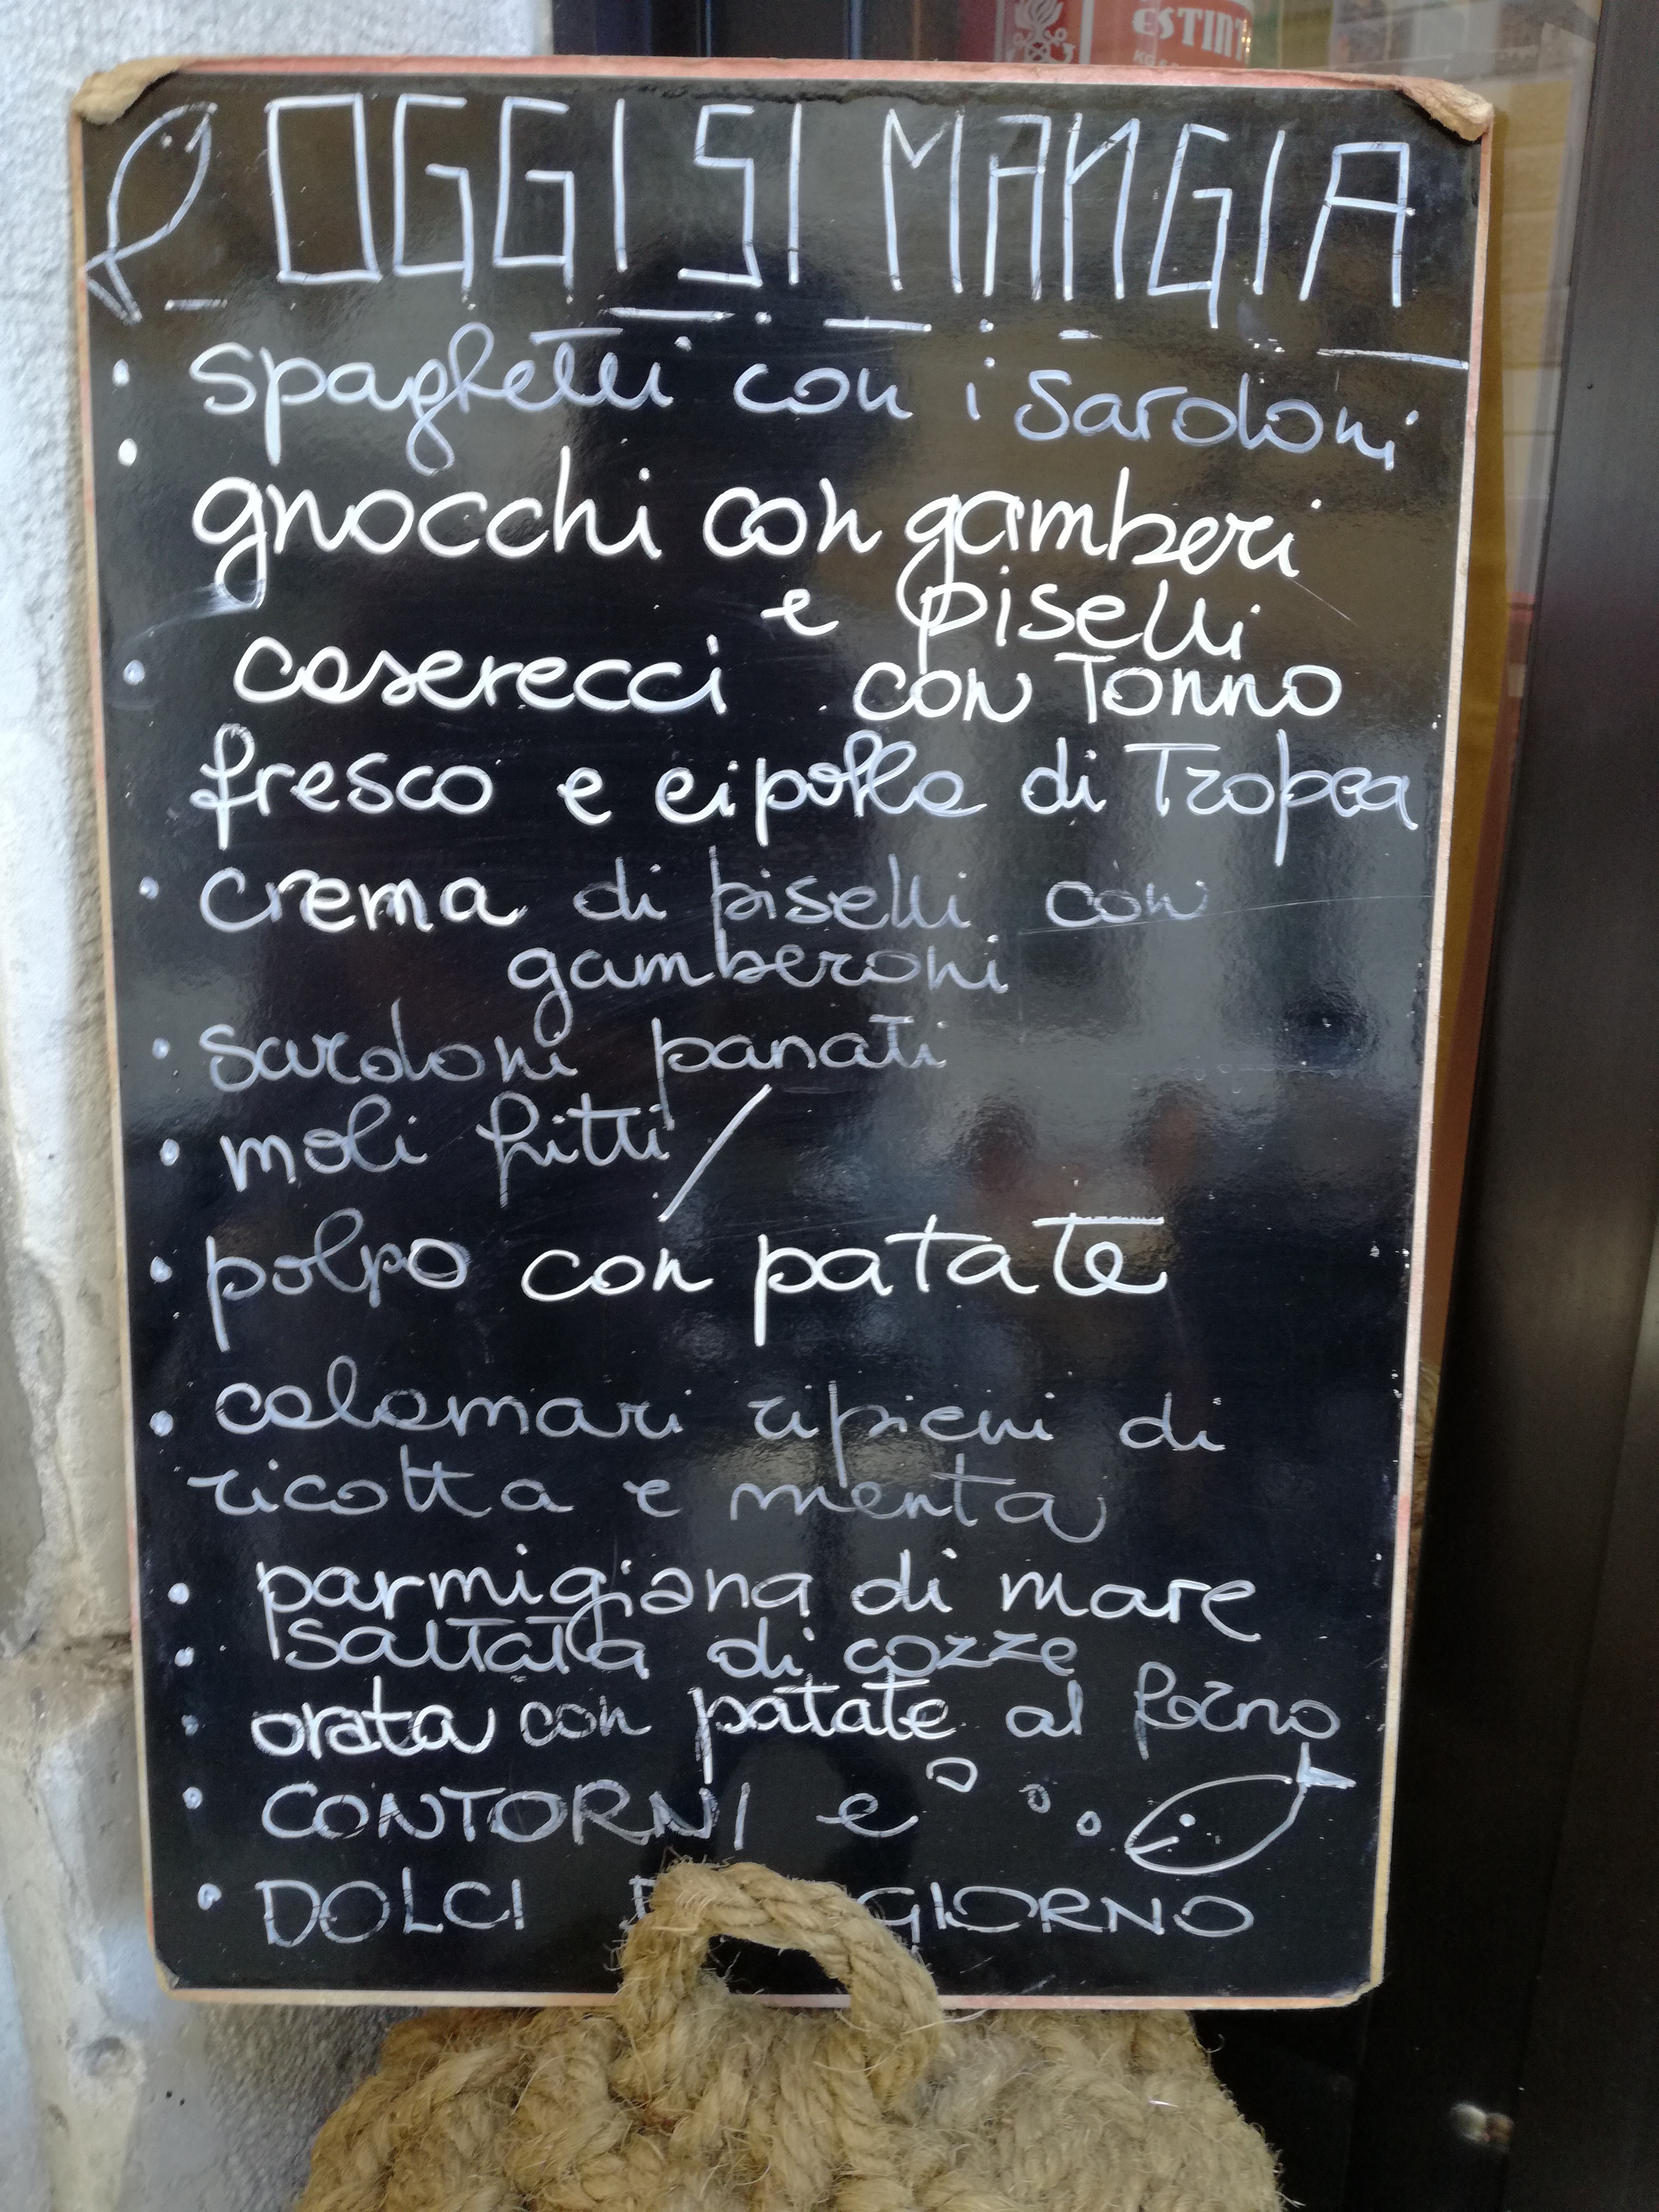 ESTINT
KG
OGGI SI MANGIA
• spaghetti con i sardoni
• gnocchi con gamberi
e piselli
• caserecci con Tonno
fresco e cipolla di Tropea
• crema di piselli con
gamberoni
• sardoni panati
• moli fritti /
• polpo con patate
• calamari ripieni di
ricotta e menta
• parmigiana di mare
• saltata di cozze
• orata con patate al forno
• CONTORNI e
• DOLCI GIORNO